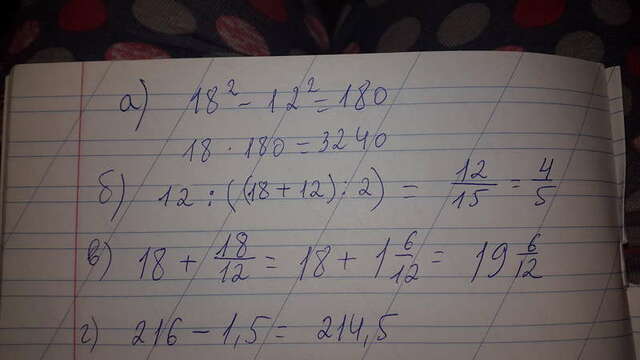 а) 18² - 12² = 180
18 · 180 = 3240
б) 12 : ((18 + 12) : 2) = 12/15 = 4/5
в) 18 + 18/12 = 18 + 1 6/12 = 19 6/12
г) 216 - 1,5 = 214,5